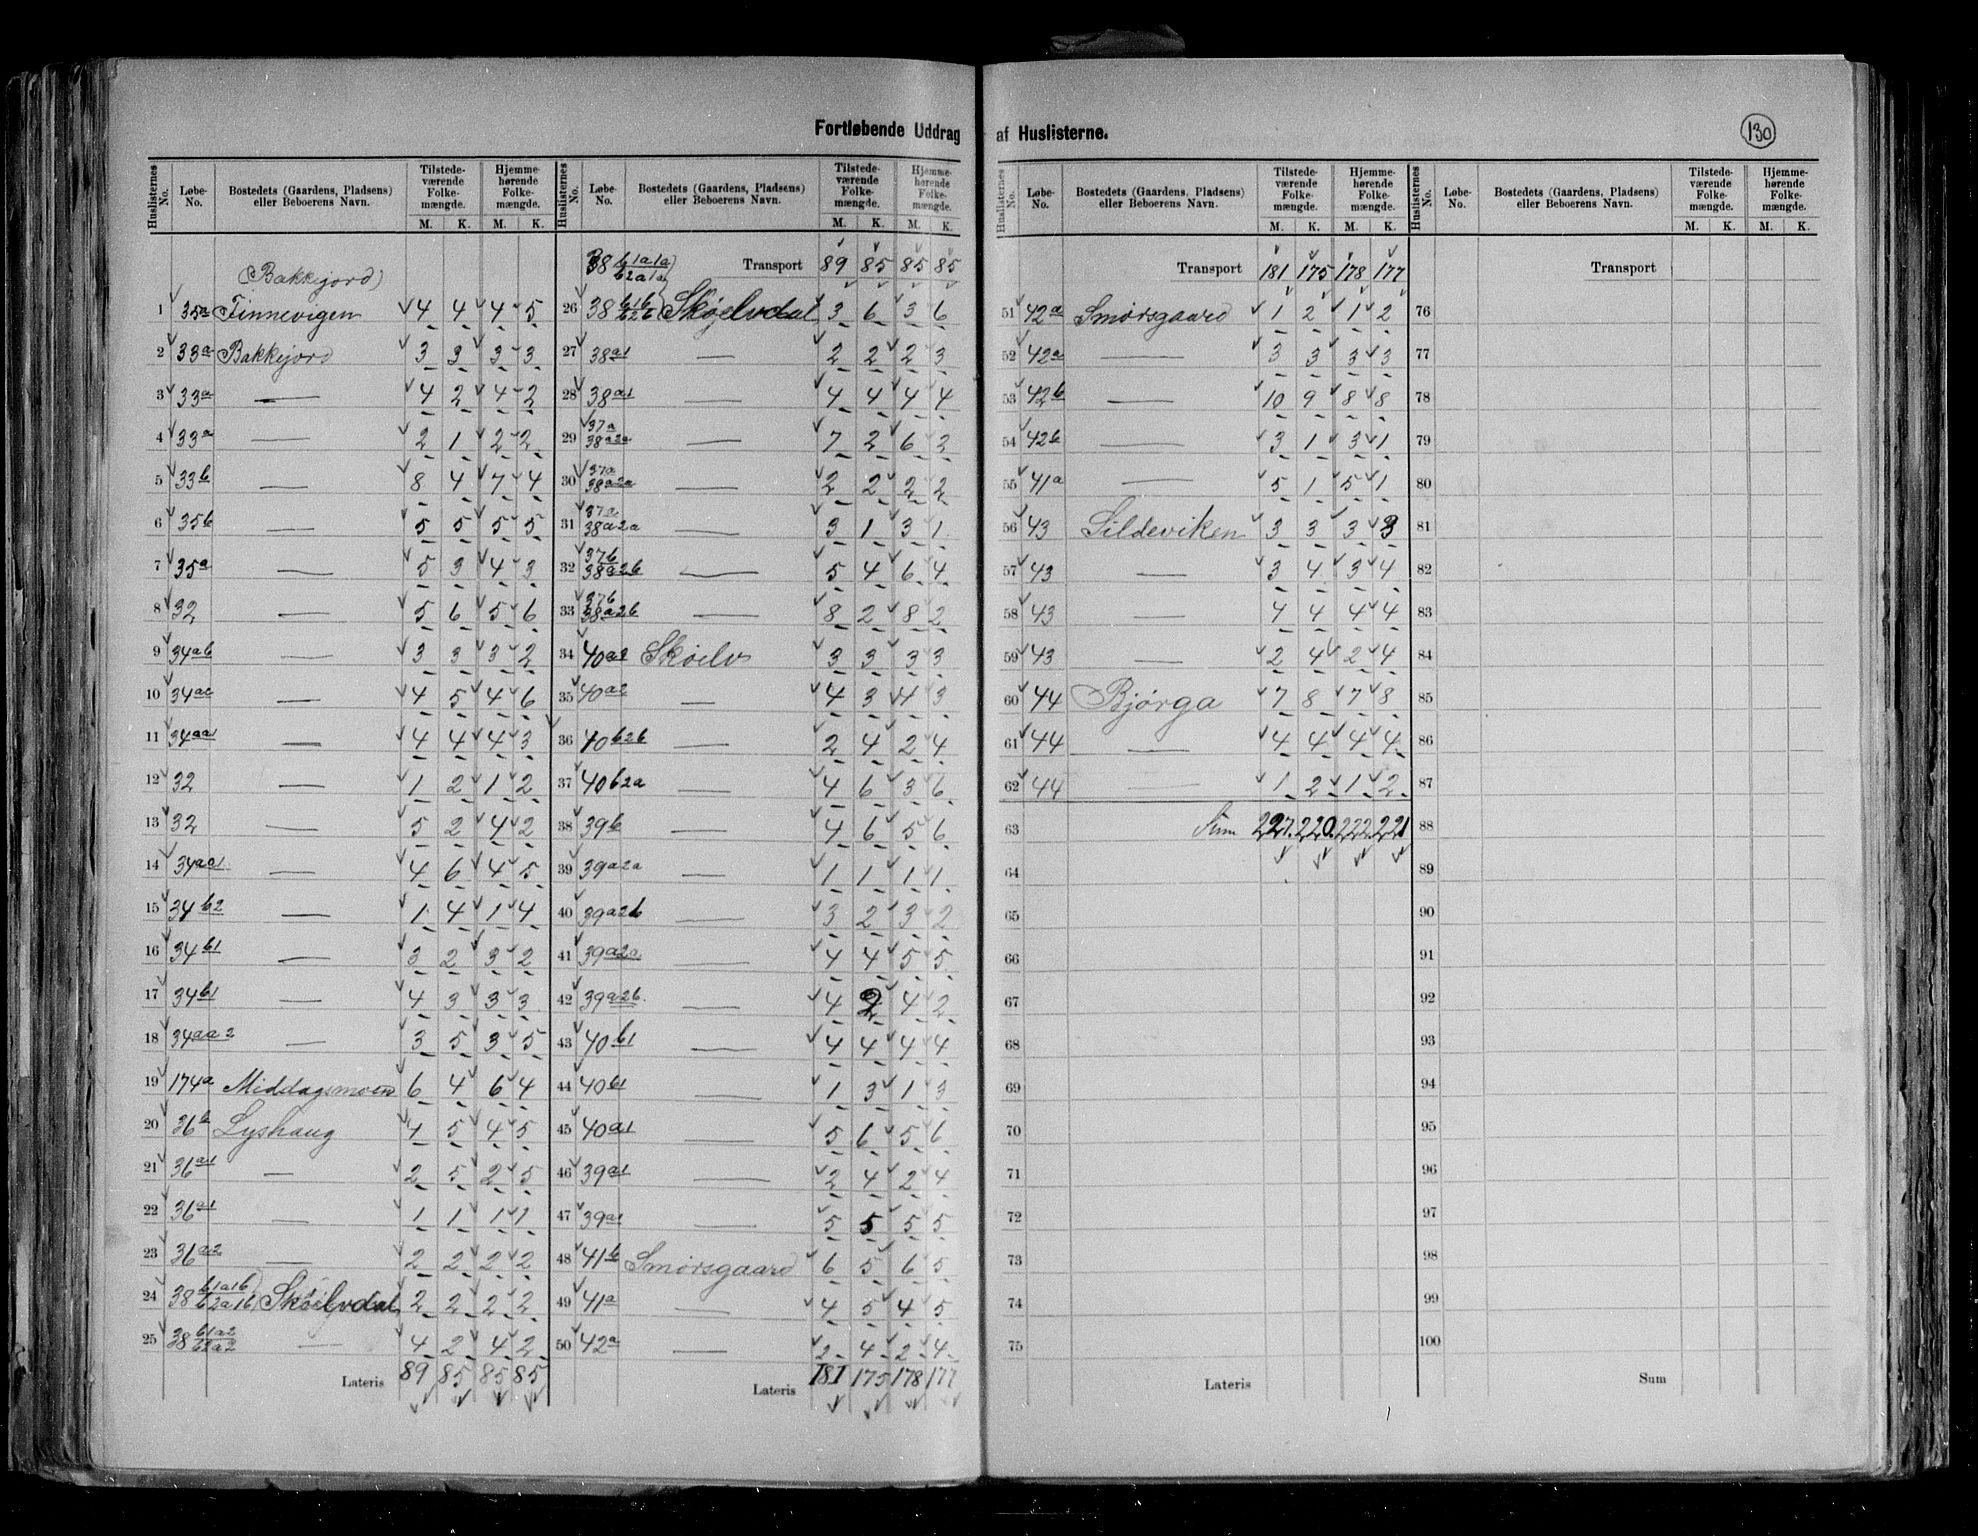 Fortløbende Uddrag af Huslisterne.
130
Huslisternes No. Løbe-No. Bostedets (Gaardens, Pladsens) eller Beboerens Navn. Tilstedeværende Folkemængde. M. K. Hjemmehørende Folkemængde. M. K.
(Bakkejord)
1 35a Finnevigen 4 4 4 5
2 33a Bakkejord 3 3 3 3
3 33a — 4 2 4 2
4 33a — 2 1 2 2
5 33b — 8 4 7 4
6 35b — 5 5 5 5
7 35a — 5 3 4 3
8 32 — 5 6 5 6
9 34ab — 3 3 3 2
10 34ac — 4 5 4 6
11 34aa1 — 4 4 4 3
12 32 — 1 2 1 2
13 32 — 5 2 4 2
14 34aa1 — 4 6 4 5
15 34b2 — 1 4 1 4
16 34b1 — 3 2 3 2
17 34b1 — 4 3 3 3
18 34aa2 — 3 5 3 5
19 174a Middagsmoen 6 4 6 4
20 36b Lyshaug 4 5 4 5
21 36a1 — 2 5 2 5
22 36a1 — 1 1 1 1
23 36a2 — 2 2 2 2
24 38 b1a1b b2a1b Skøelvdal 2 2 2 2
25 38 b1a2 b2a2 — 4 2 4 2
Lateris 89 85 85 85
Huslisternes No. Løbe-No. Bostedets (Gaardens, Pladsens) eller Beboerens Navn. Tilstedeværende Folkemængde. M. K. Hjemmehørende Folkemængde. M. K.
38 b1a1a b2a1a Transport 89 85 85 85
26 38 b1b b2b Skøelvdal 3 6 3 6
27 38a1 — 2 2 2 3
28 38a1 — 4 4 4 4
29 37a 38a2a — 7 2 6 2
30 37a 38a2a — 2 2 2 2
31 37a 38a2a — 3 1 3 1
32 37b 38a2b — 5 4 6 4
33 37b 38a2b — 8 2 8 2
34 40a2 Skøelv 3 3 3 3
35 40a2 — 4 3 4 3
36 40b2b — 2 4 2 4
37 40b2a — 4 6 3 6
38 39b — 4 6 5 6
39 39a2a — 1 1 1 1
40 39a2b — 3 2 3 2
41 39a2a — 4 4 5 5
42 39a2b — 4 2 4 2
43 40b1 — 4 4 4 4
44 40b1 — 1 3 1 3
45 40a1 — 5 6 5 6
46 39a1 — 2 4 2 4
47 39a1 — 5 5 5 5
48 41b Smørsgaard 6 5 6 5
49 41a — 4 5 4 5
50 42a — 2 4 2 4
Lateris 181 175 178 177
Huslisternes No. Løbe-No. Bostedets (Gaardens, Pladsens) eller Beboerens Navn. Tilstedeværende Folkemængde. M. K. Hjemmehørende Folkemængde. M. K.
Transport 181 175 178 177
51 42a Smørsgaard 1 2 1 2
52 42a — 3 3 3 3
53 42b — 10 9 8 8
54 42b — 3 1 3 1
55 41a — 5 1 5 1
56 43 Sildeviken 3 3 3 3
57 43 — 3 4 3 4
58 43 — 4 4 4 4
59 43 — 2 4 2 4
60 44 Bjørga 7 8 7 8
61 44 — 4 4 4 4
62 44 — 1 2 1 2
63 Sum 227. 220. 222. 221
64
65
66
67
68
69
70
71
72
73
74
75
Lateris
Huslisternes No. Løbe-No. Bostedets (Gaardens, Pladsens) eller Beboerens Navn. Tilstedeværende Folkemængde. M. K. Hjemmehørende Folkemængde. M. K.
Transport
76
77
78
79
80
81
82
83
84
85
86
87
88
89
90
91
92
93
94
95
96
97
98
99
100
Sum